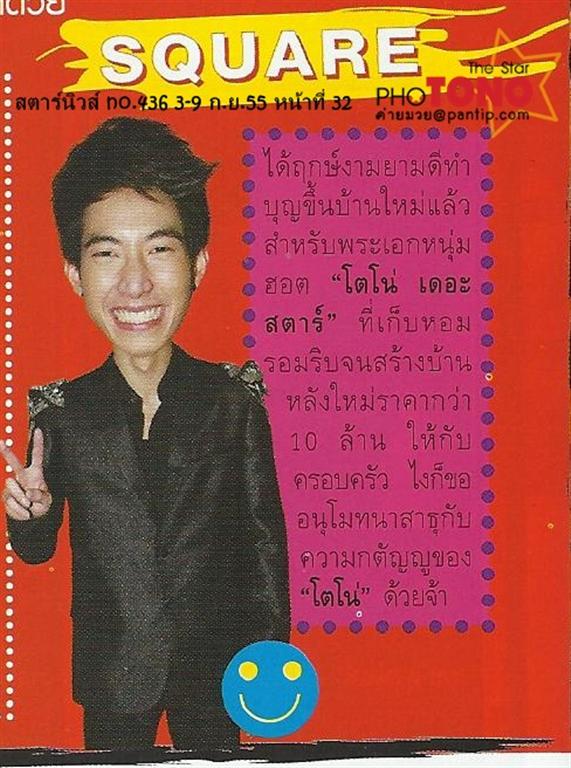 SQUARE
The Star
สตาร์นิวส์ no.436 3-9 ก.ย.55 หน้าที่ 32
PHOTONO
ค่ายมวย@pantip.com
ได้ฤกษ์งามยามดีทำ
บุญขึ้นบ้านใหม่แล้ว
สำหรับพระเอกหนุ่ม
ฮอต “โตโน่ เดอะ
สตาร์” ที่เก็บหอม
รอมริบจนสร้างบ้าน
หลังใหม่ราคากว่า
10 ล้าน ให้กับ
ครอบครัว ไงก็ขอ
อนุโมทนาสาธุกับ
ความกตัญญูของ
“โตโน่” ด้วยจ้า